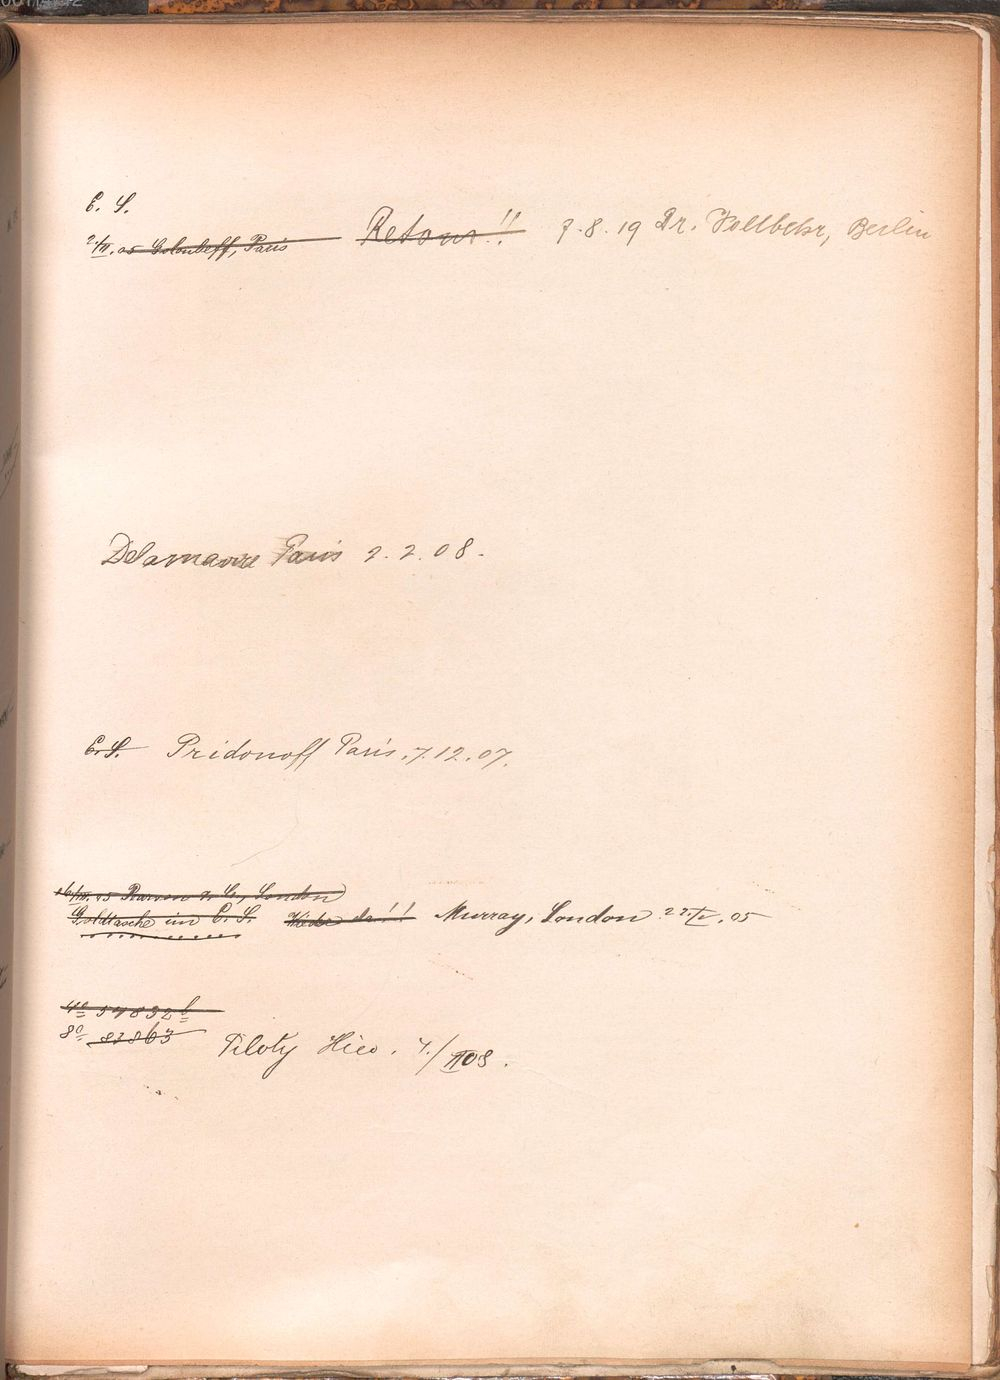 E. S.
2./II. 05 Goloubeff, Paris Retour!! 7. 8. 19 Dr. Vollbehr, Berlin
Delamarre Paris 2. 2. 08.
E. S. Pridonoff Paris. 7. 12. 07.
16/III. 05 & Co, London
Goldtasche im E. S. Wieder da!! Murray, London 05
4º 57832 b
8º 83863
Piloty Hier. 7./II 08.